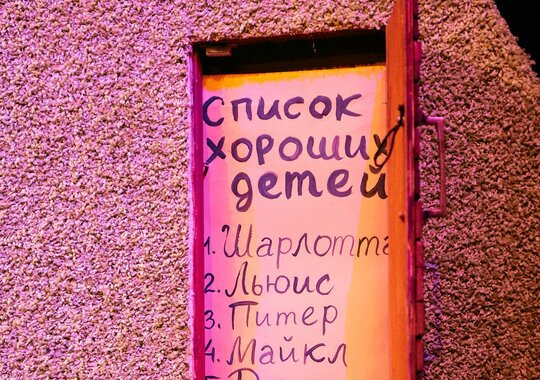 Список
хороших
детей
1. Шарлотта
2. Льюис
3. Питер
4. Майкл